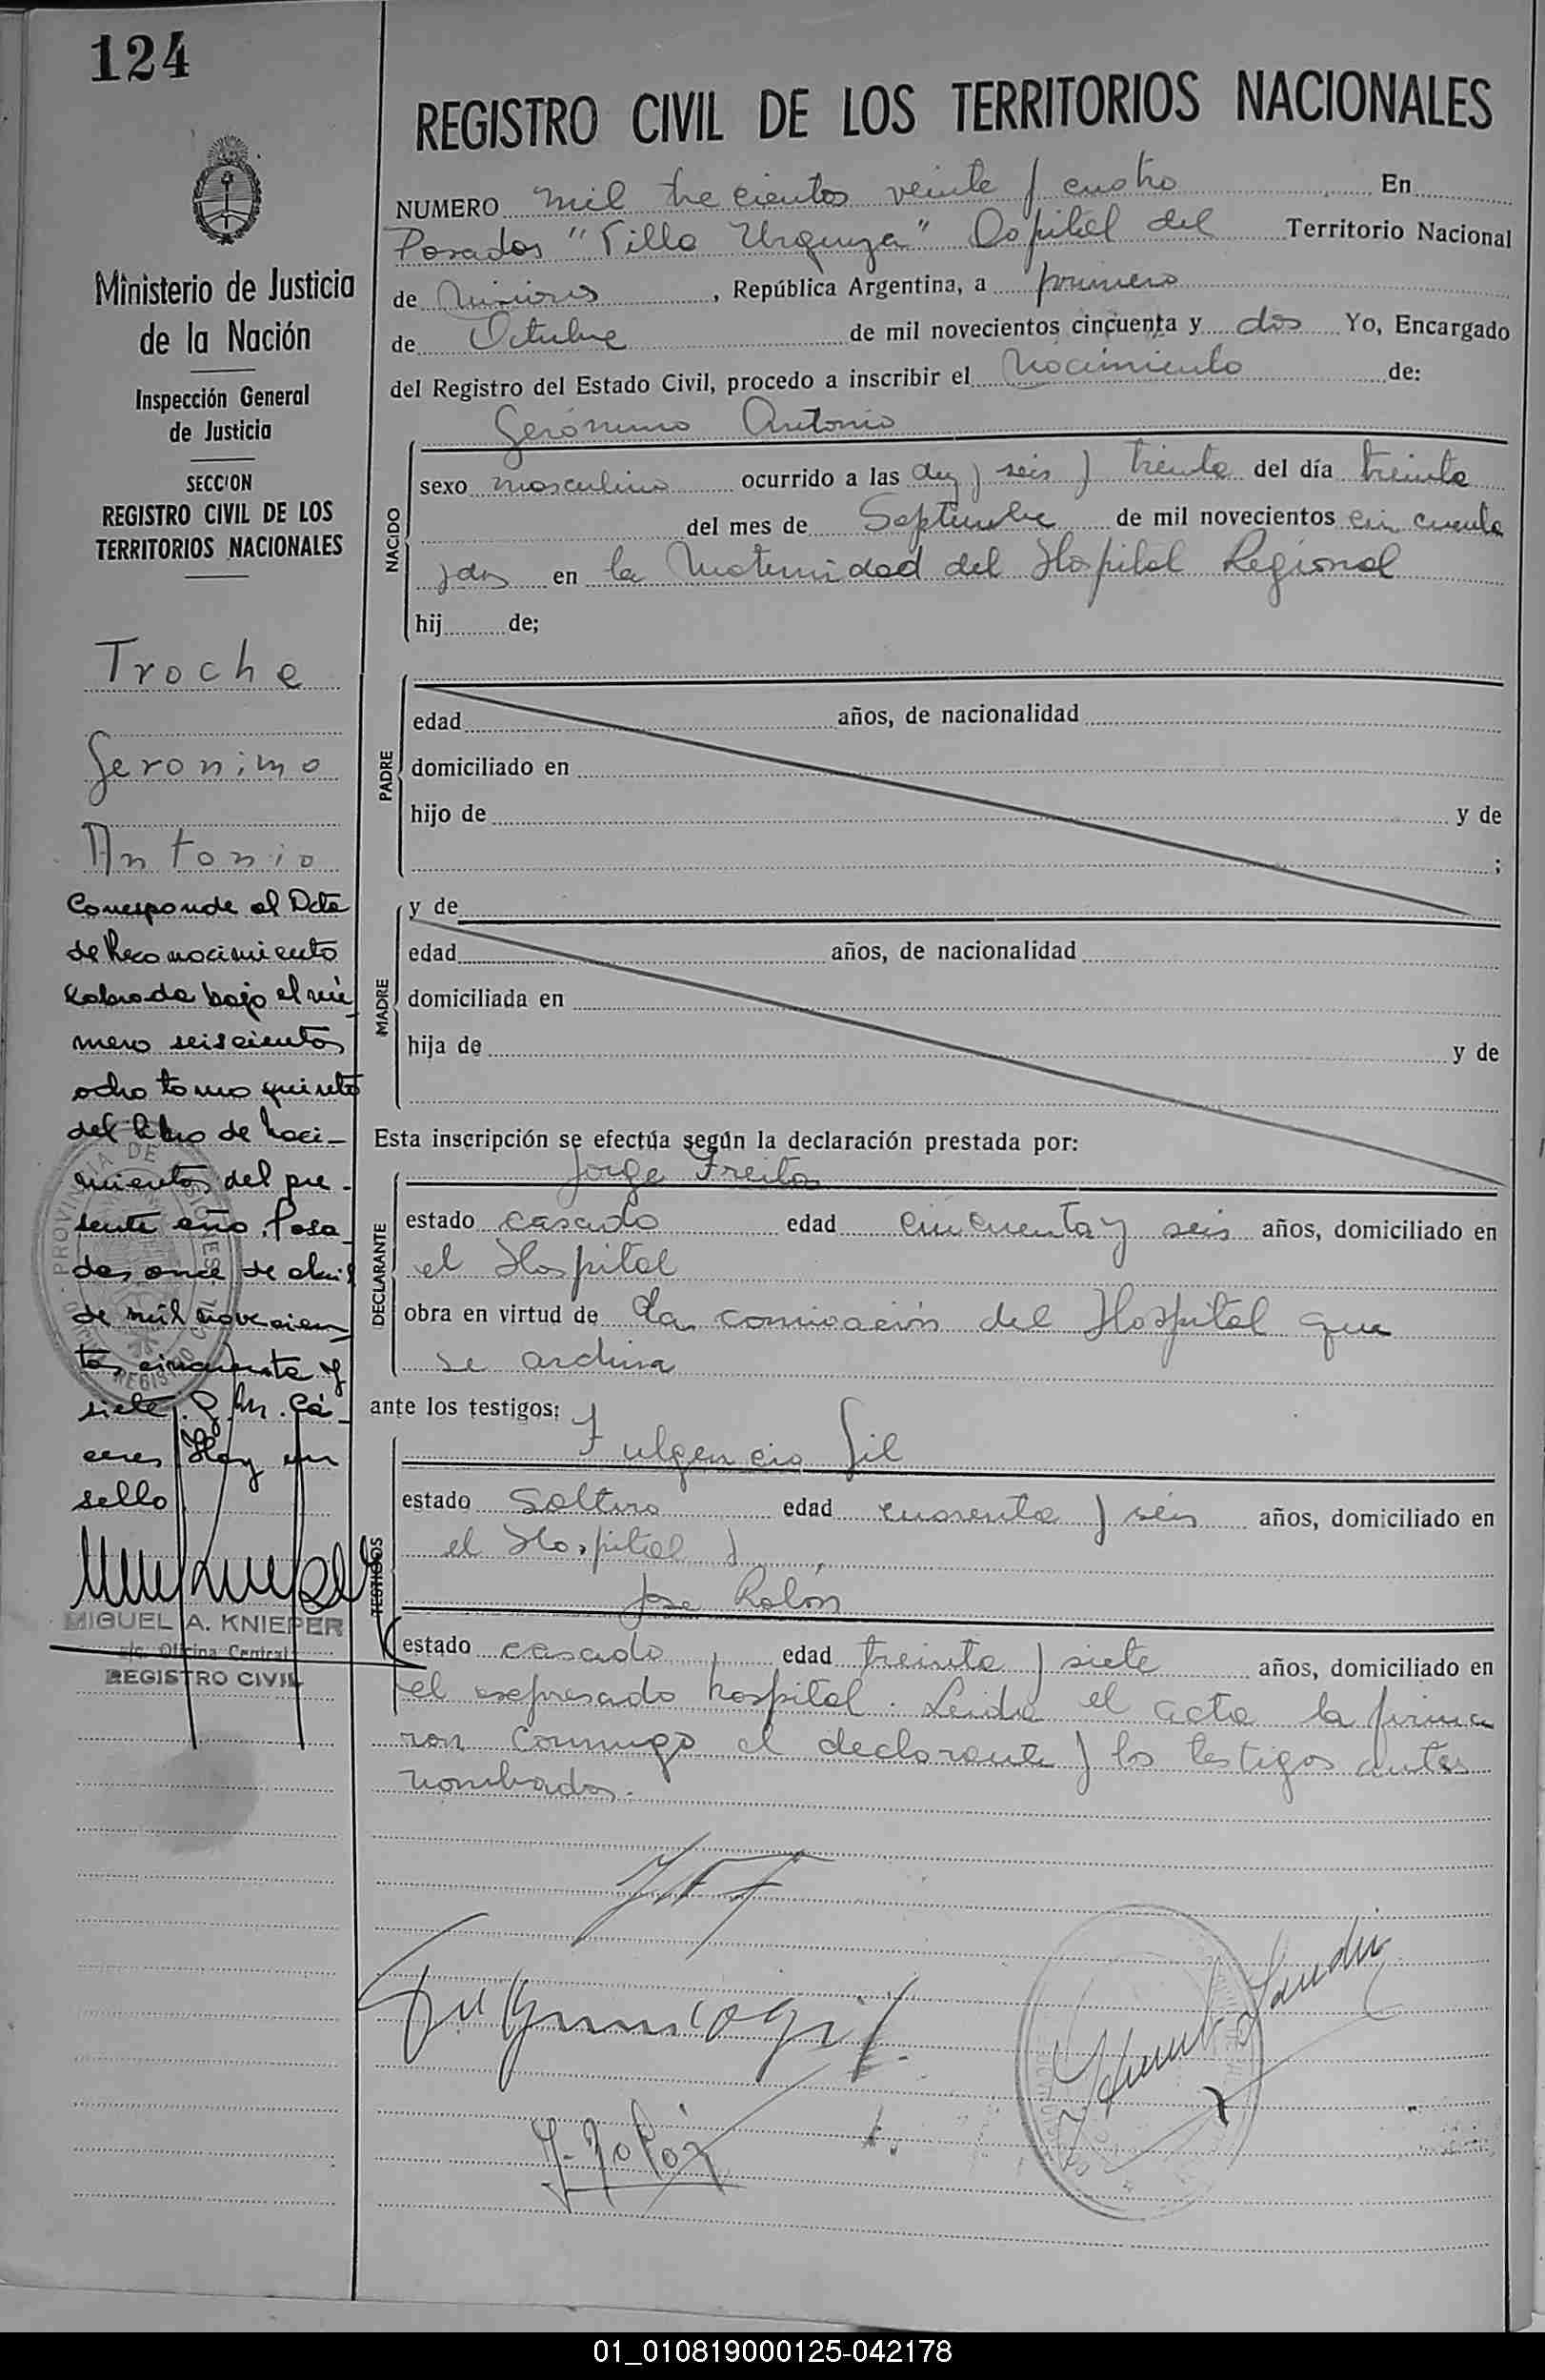 124
REGISTRO CIVIL DE LOS TERRITORIOS NACIONALES
NUMERO mil trecientos veinte y cuatro En
Posadas "Villa Urquiza" Ospital del Territorio Nacional
de Misiones, República Argentina, a primero
de Octubre de mil novecientos cincuenta y dos Yo, Encargado
del Registro del Estado Civil, procedo a inscribir el Nacimiento de:
Gerónimo Antonio
NACIDO
sexo masculino ocurrido a las diez y seis y treinta del día treinta
del mes de Septiembre de mil novecientos cincuenta
y dos en la Maternidad del Hospital Regional
hij de;
PADRE
edad años, de nacionalidad
domiciliado en
hijo de y de
;
MADRE
y de
edad años, de nacionalidad
domiciliada en
hija de y de
Esta inscripción se efectúa según la declaración prestada por:
Jorge Freita
DECLARANTE
estado casado edad cincuenta y seis años, domiciliado en
el Hospital
obra en virtud de la comicación del Hospital que
se archiva
ante los testigos:
Fulgencio Gil
TESTIGOS
estado Soltero edad cuarenta y seis años, domiciliado en
el Hospital y
Jose Rolón
estado casado edad treinta y siete años, domiciliado en
el expresado hospital. Leida el acta la firma
ron conmigo el declarante y los testigos antes
nombrados.
Fulgencio gil
J. Rolón
Ministerio de Justicia
de la Nación
Inspección General
de Justicia
SECCION
REGISTRO CIVIL DE LOS
TERRITORIOS NACIONALES
Troche
Geronimo
Antonio
Corresponde al Acta
de Reconocimiento
labrada bajo el nú-
mero seiscientos
ocho tomo quinto
del libro de Naci-
mientos del pre-
sente año. Posa-
das once de abril
de mil novecien-
tos cincuenta y
siete. J. M. Cá-
ceres Hay un
sello
PROVINCIA DE MISIONES
MIGUEL A. KNIEPER
a/c. Oficina Central
REGISTRO CIVIL
01_010819000125-042178